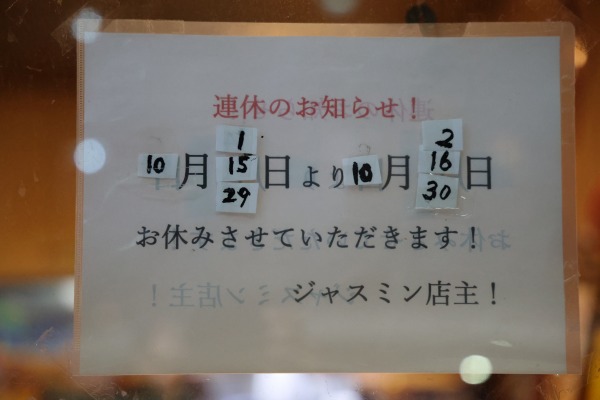 連休のお知らせ！
1 2
10月15日より10月16日
29 30
お休みさせていただきます！
ジャスミン店主！